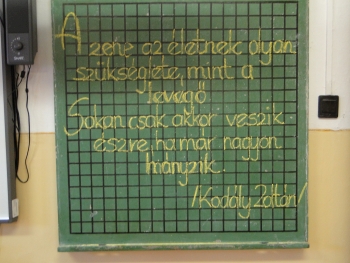 A zene az életnek olyan
szükséglete, mint a
levegő
Sokan csak akkor veszik
észre, ha már nagyon
hiányzik.
/Kodály Zoltán/